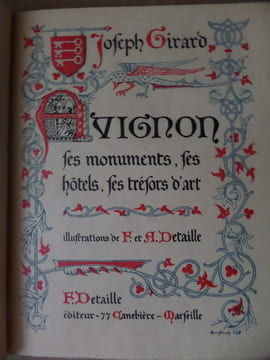 Joseph Girard
AVIGNON
ses monuments, ses
hôtels, ses trésors d'art
illustrations de F. et A. Detaille
F. Detaille
éditeur - 77 Canebière - Marseille